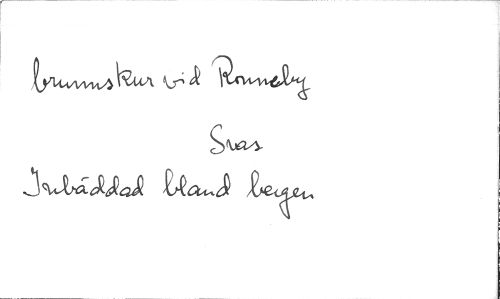 brunnskur vid Ronneby
Svar
Inbäddad bland bergen